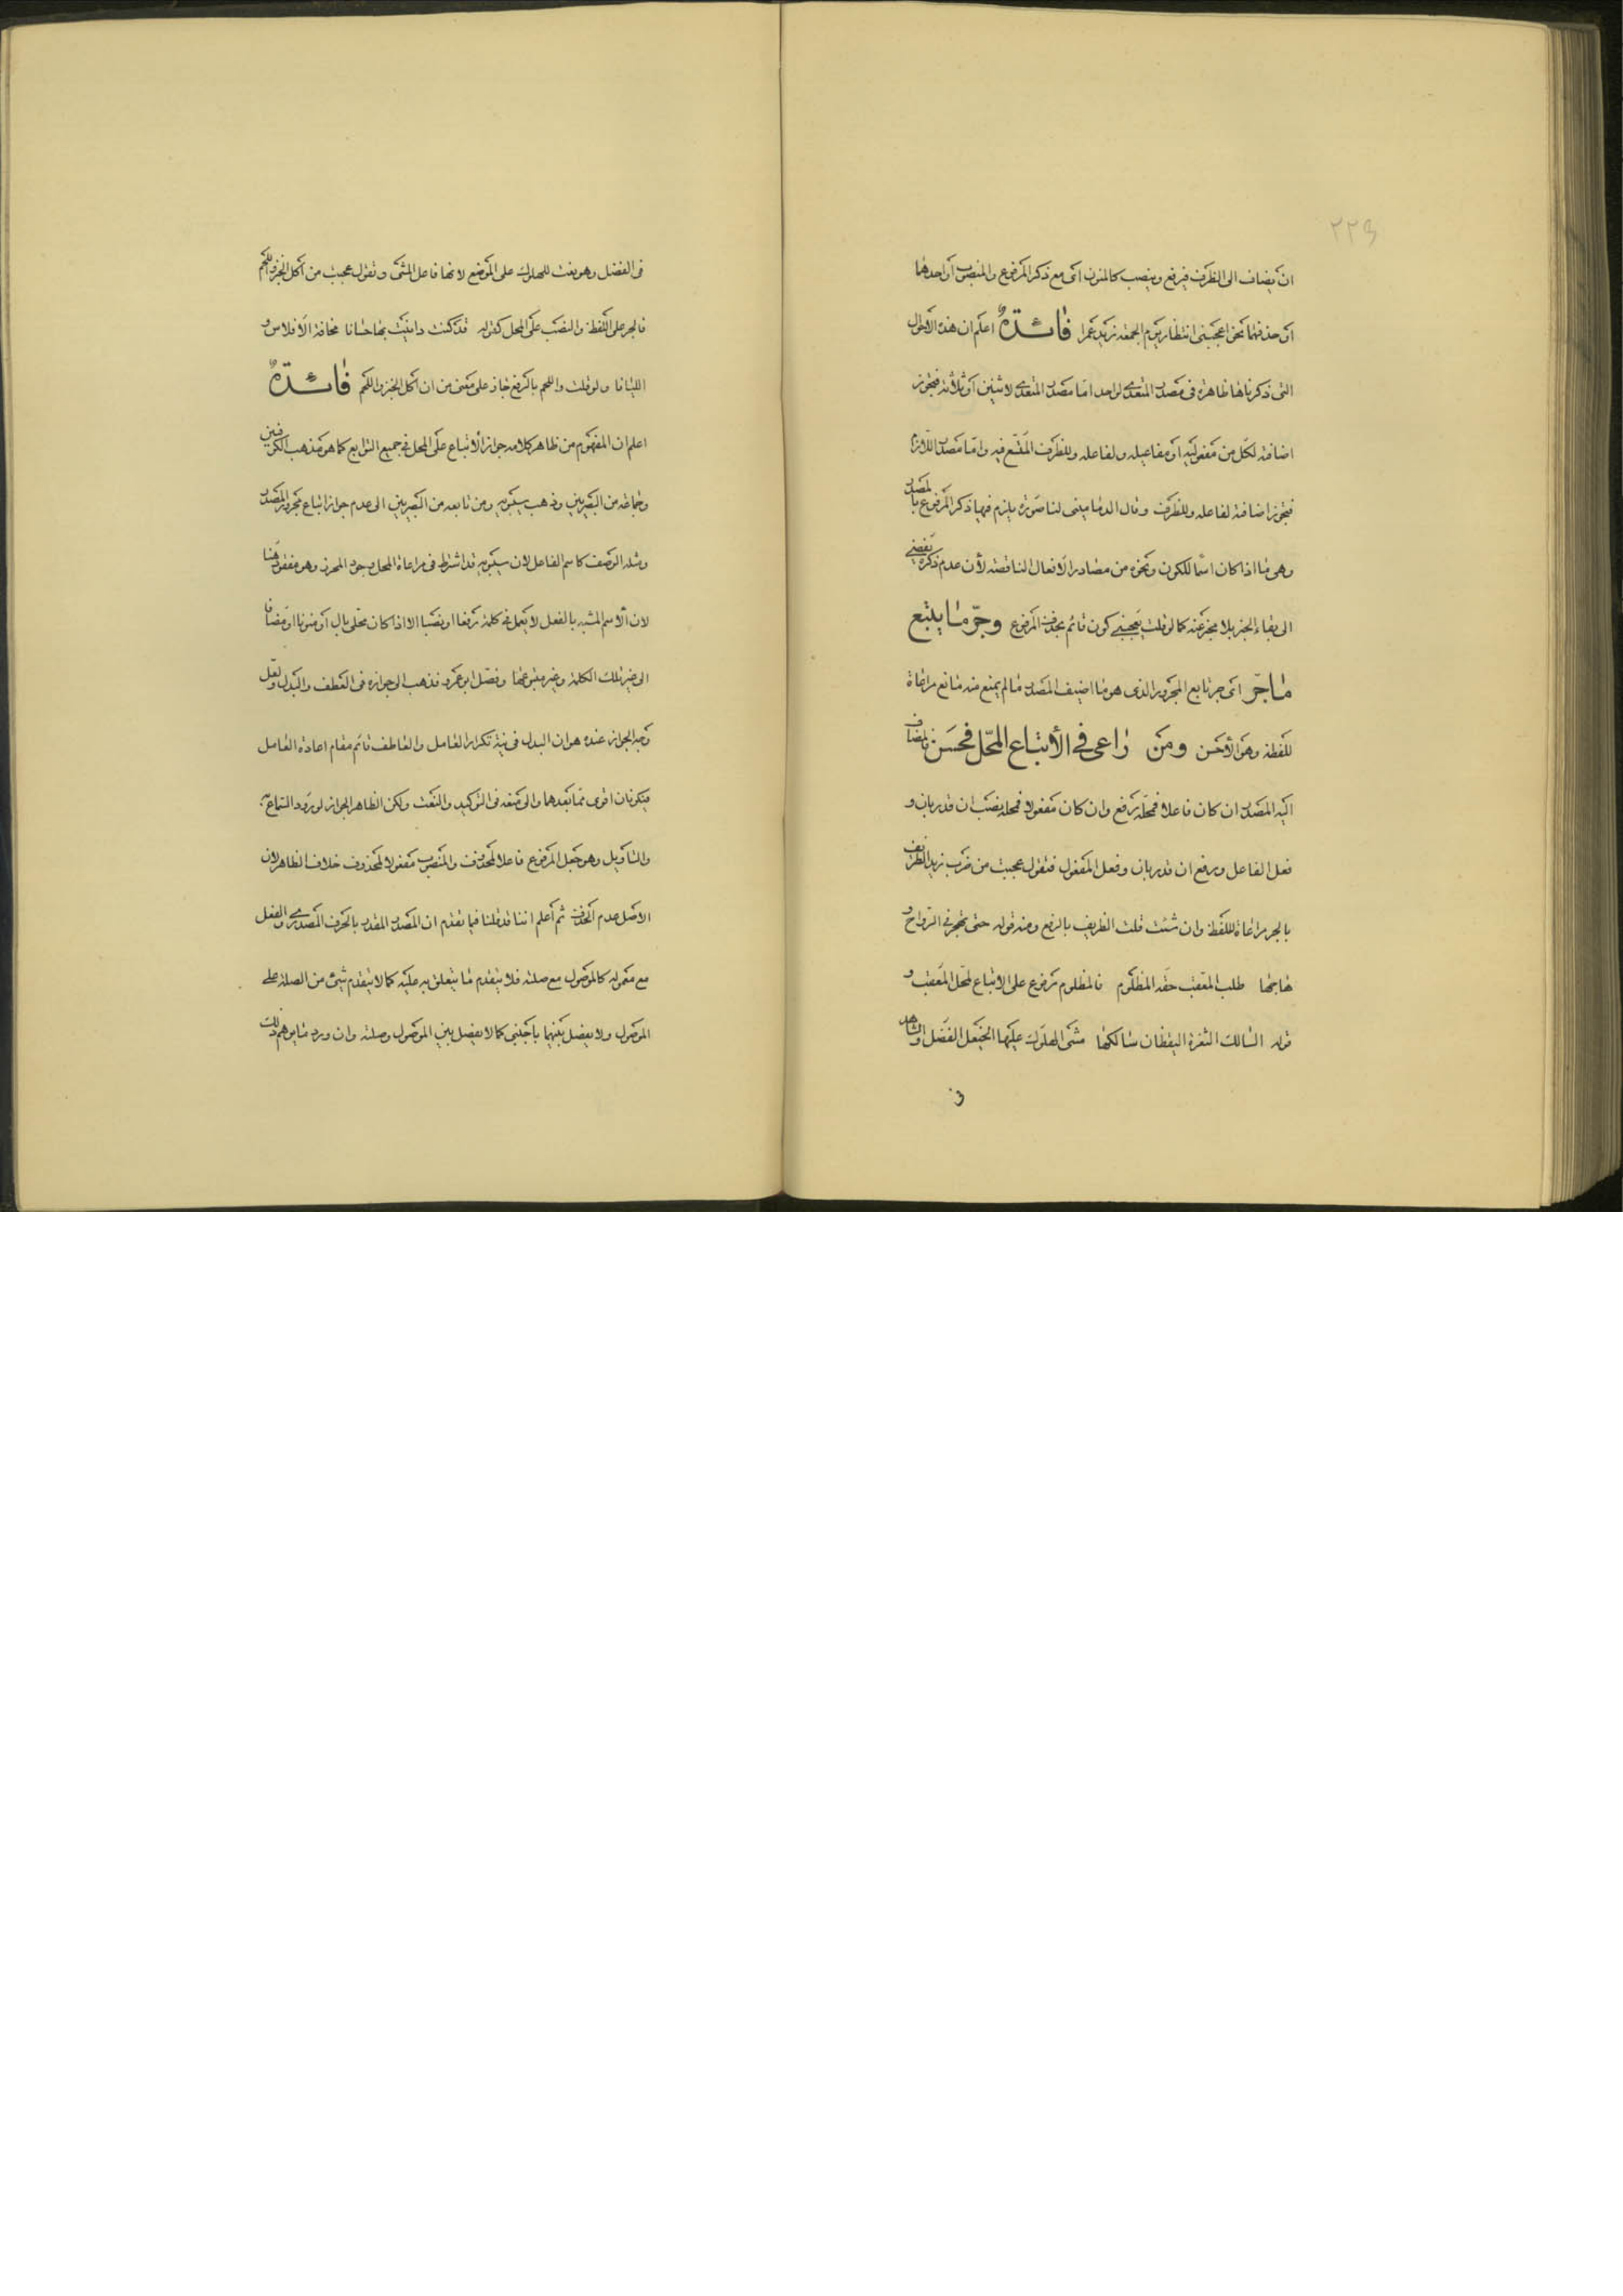 ٢٢٩
ان يضاف الى الظرف فيرفع وينصب كالمنون اى مع ذكر المرفوع والمنصوب او احدهما
او حذفهما نحو اعجبنى انتظار يوم الجمعة زيد عمرا فائدة اعلم ان هذه الاحوال
التى ذكرناها ظاهرة فى مصدر المتعدى لواحد اما مصدر المتعدى لاثنين او ثلاثة فيجوز
اضافته لكل من مفعوليه او مفاعيله ولفاعله وللظرف المتسع فيه واما مصدر اللازم
فيجوز اضافته لفاعله وللظرف وقال الدمامينى لنا صورة يلزم فيها ذكر المرفوع بالمصدر
وهى ما اذا كان اسما للكون ونحوه من مصادر الافعال الناقصة لأن عدم ذكره يفضى
الى بقاء الخبر بلا مخبر عنه كما لو قلت يعجبنى كون قائم بحذف المرفوع وجرّ ما يتبع
ما جرّ اى جر تابع المجرور الذى هو ما اضيف المصدر ما لم يمنع منه مانع مراعاة
للفظه وهو الأحسن ومن راعى فى الأتباع المحلّ فحسن فالمضاف
اليه المصدر ان كان فاعلا فمحله رفع وان كان مفعولا فمحله نصب ان قدر بان و
فعل الفاعل ورفع ان قدر بان وفعل المفعول فتقول عجبت من ضرب زيد الظريف
بالجر مراعاة للفظ وان شئت قلت الظريف بالرفع ومنه قوله حتى تهجر فى الرواح و
هاجها طلب المعقب حقه المظلوم فالمظلوم مرفوع على الاتباع لمحل المعقب و
قوله السالك الثغرة اليقظان سالكها مشى الهلوك عليها الخيعل الفضل والشاهد
فى
فى الفضل وهو نعت للهلوك على الموضع لانها فاعل المشى وتقول عجبت من اكل الخبز واللحم
فالجر على اللفظ والنصب على المحل كقوله قد كنت داينت بها حسانا مخافة الافلاس و
الليانا ولو قلت واللحم بالرفع جاز على معنى من ان اكل الخبز واللحم فائدة
اعلم ان المفهوم من ظاهر كلامه جواز الاتباع على المحل فى جميع التوابع كما هو مذهب الكوفيين
وجماعة من البصريين وذهب سيبويه ومن تابعه من البصريين الى عدم جواز اتباع مجرور المصدر
ومثله الوصف كاسم الفاعل لان سيبويه قد اشترط فى مراعاة المحل وجود المحرز وهو مفقود هنا
لان الاسم المشبه بالفعل لا يعمل فى كلمة رفعا او نصبا الا اذا كان محلى بال او منونا او مضافا
الى غير تلك الكلمة وغير متبوعها وفصل ابو عمرو فذهب الى جوازه فى العطف والبدل ولعل
وجه الجواز عنده هو ان البدل فى نية تكرار العامل والعاطف قائم مقام اعادة العامل
فيكونان اقوى مما بعدهما والى منعه فى التوكيد والنعت ولكن الظاهر الجواز لورود السماع به
والتاويل وهو جعل المرفوع فاعلا لمحذوف والمنصوب مفعولا لمحذوف خلاف الظاهر لان
الاصل عدم الحذف ثم اعلم اننا قد قلنا فيما تقدم ان المصدر المقدر بالحرف المصدرى والفعل
مع معموله كالموصول مع صلته فلا يتقدم ما يتعلق به عليه كما لا يتقدم شىء من الصلة على
الموصول ولا يفصل بينهما باجنبى كما لا يفصل بين الموصول وصلته وان ورد ما يوهم ذلك